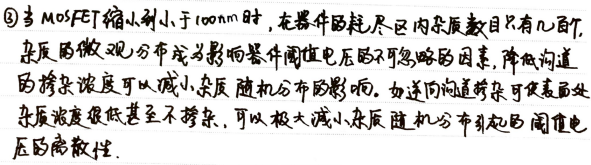 ③当MOSFET缩小到小于100nm时,在器件的耗尽区内杂质数目只有几百个,
杂质的微观分布成为影响器件阈值电压的不可忽略的因素,降低沟道
的掺杂浓度可以减小杂质随机分布的影响。如逆向沟道掺杂可使表面处
杂质浓度很低甚至不掺杂,可以极大减小杂质随机分布引起的阈值电
压的离散性.